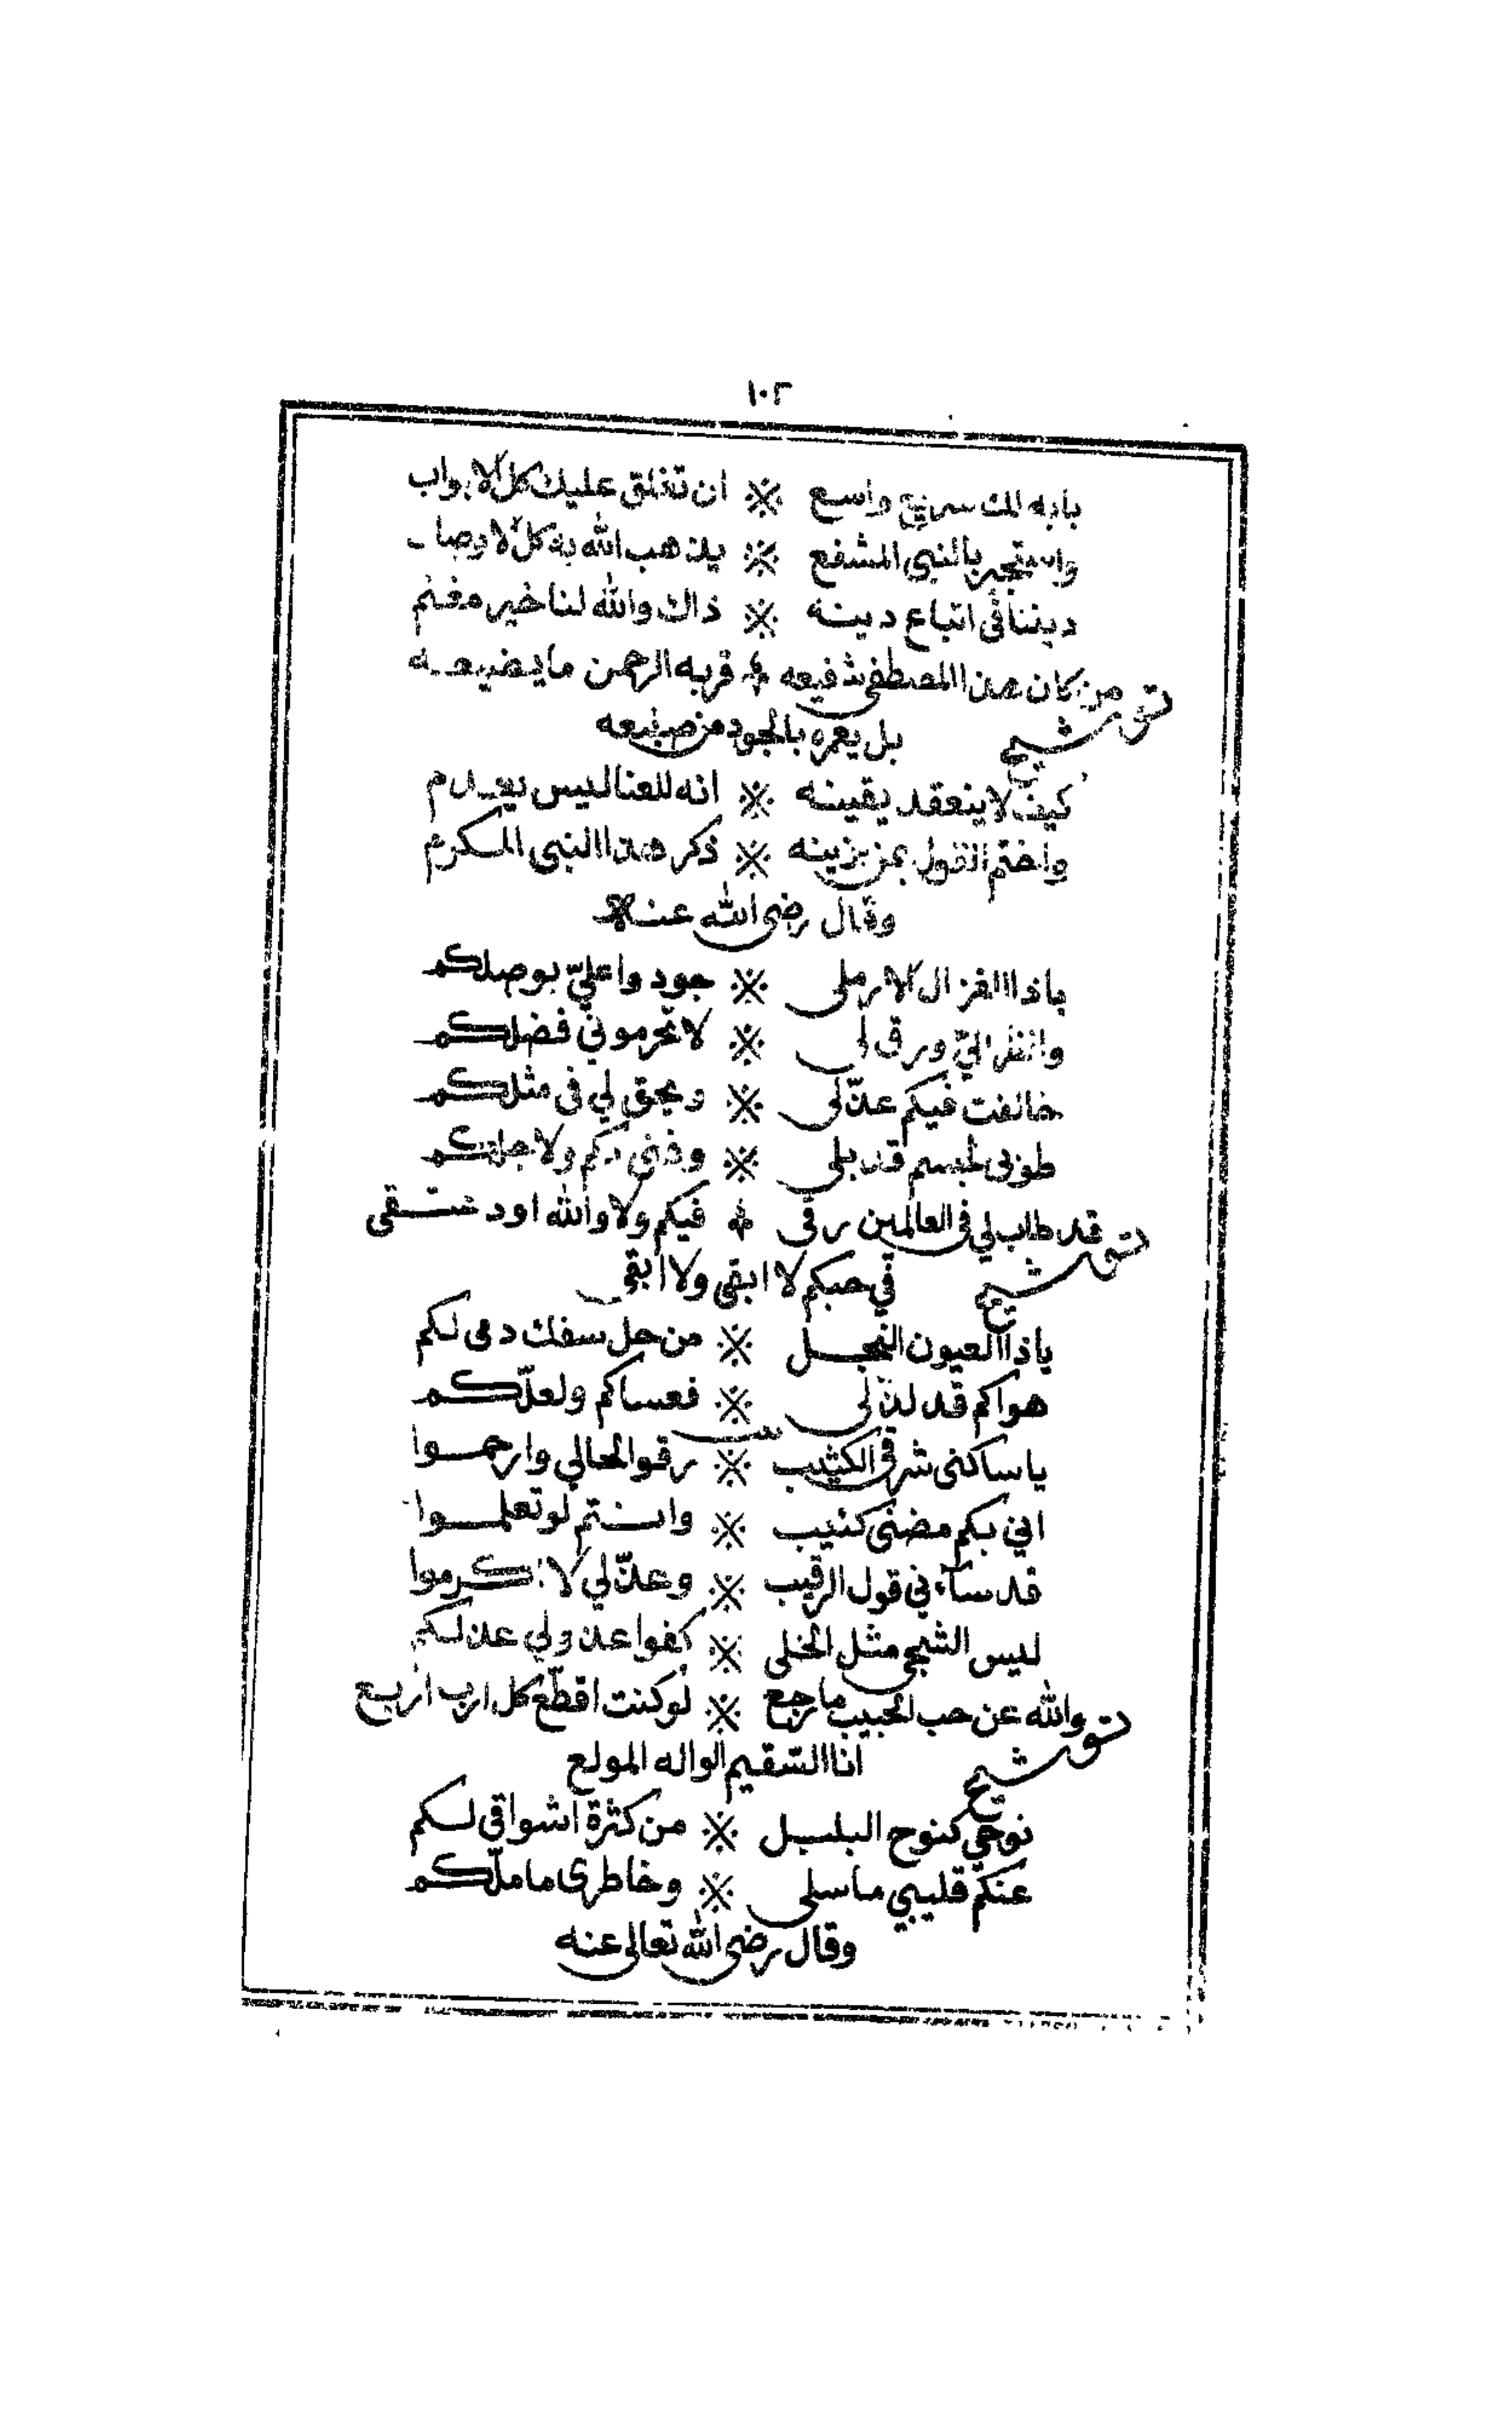 ١٠٢
بابه لك سريع واسع ※ ان تغلق عليك كل الابواب
واستجير بالنبي المشفع ※ يذهب الله به كل الاوصاب
ديننا في اتباع دينه ※ ذاك والله لنا خير مغنم
توشيح من كان هذا المصطفى شفيعه ※ قربه الرحمن ما يضيعه
بل يعمره بالجود من صنيعه
كيف لا ينعقد يقينه ※ انه للعنا ليس يعدم
واختم القول بمن يزينه ※ ذكر هذا النبي المكرم
وقال رضي الله عنه
ياذا الغزال الارملي ※ جودوا عليّ بوصلكم
وانظر اليّ ورق لي ※ لا تحرموني فضلكم
خالفت فيكم عذّلي ※ ويحق لي في مثلكم
طوبى لجسم قد بلي ※ وفني بكم ولاجلكم
توشيح قد طاب لي في العالمين رقي ※ فيكم ولا والله اود عتقي
في حبكم لا ابقي ولا ابقي
ياذا العيون النجل ※ من حل سفك دمي لكم
هواكم قد لذّ لي ※ فعساكم ولعلّكم
يا ساكني شرقي الكثيب ※ رقوا لحالي وارحموا
اني بكم مضنى كئيب ※ وانتم لو تعلموا
قد ساءني قول الرقيب ※ وعذّلي لا اكرموا
ليس الشجي مثل الخلي ※ كفوا عذولي عذلكم
توشيح والله عن حب الحبيب ما رجع ※ لو كنت اقطّع كل ارب اربع
انا السّقيم الواله المولع
نوحي كنوح البلبل ※ من كثرة اشواقي لكم
عنكم قليبي ما سلي ※ وخاطري ما ملّكم
وقال رضي الله تعالى عنه